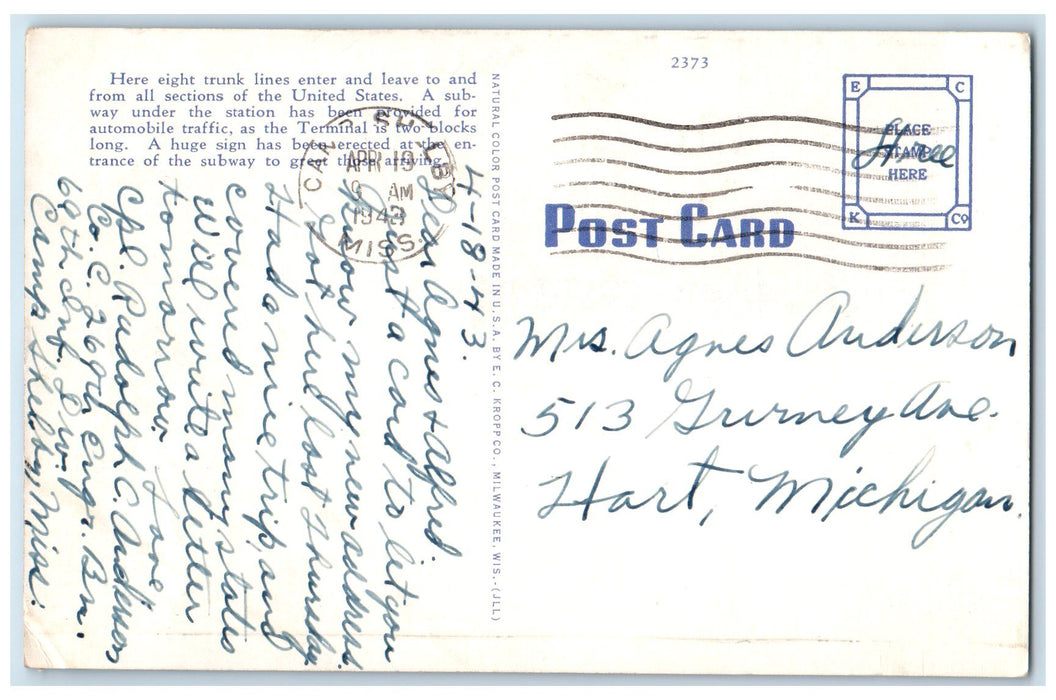 Here eight trunk lines enter and leave to and
from all sections of the United States. A sub-
way under the station has been provided for
automobile traffic, as the Terminal is two blocks
long. A huge sign has been erected at the en-
trance of the subway to greet those arriving.
2373
E C
PLACE
STAMP
HERE
K Co
Free
POST CARD
CAMP SHELBY
APR 19
9 AM
1943
MISS.
NATURAL COLOR POST CARD MADE IN U.S.A. BY E. C. KROPP CO., MILWAUKEE, WIS.-(JLL)
4-18-43.
Dear Agnes & Alfred.
Just a card to let you
know my new address.
Got here last Thursday.
Had a nice trip, and
covered many states
Will write a letter
tomorrow. Love
Cpl. Rudolph C. Anderson
Co. C. 269th Engr. Bn.
69th Inf. Div.
Camp Shelby, Miss.
Mrs. Agnes Anderson
513 Gurney Ave.
Hart, Michigan.